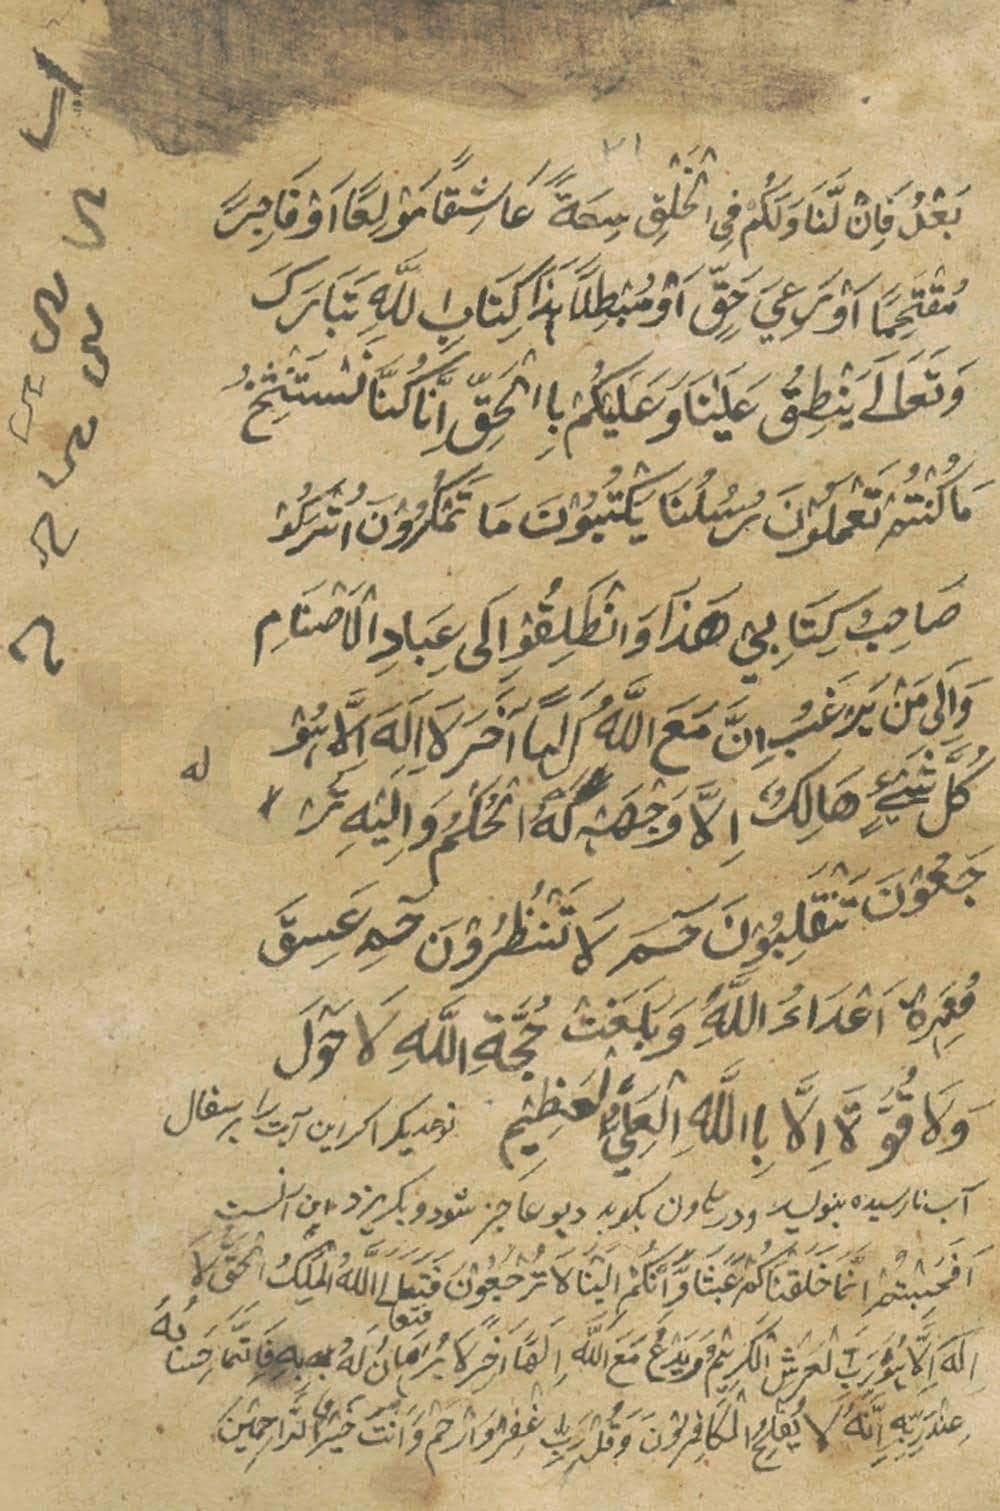 بَعْدُ فَاِنَّ لَّنَا وَلَكُمْ فِي الْخَلْقِ سِعَةً عَاشِقًا مَوْلِعًا اَوْ فَاجِرًا
مُقْتَحِمًا اَوْ رَعِيَ حَقّ اَوْ مُبْطِلًا هٰذَا كِتَابِ اللَّهِ تَبَارَكَ
وَتَعَالَى يَنْطِقُ عَلَيْنَا وَعَلَيْكُمْ بِاالْحَقِّ اِنَّا كُنَّا نَسْتَنْسِخُ
مَا كُنْتُمْ تَعْمَلُوْنَ رُسُلُنَا يَكْتُبُوْنَ مَا تَمْكُرُوْنَ اُتْرُكُوْ
صَاحِبُ كِتَابِيْ هَذَا وَانْطَلِقُوْا اِلَى عِبَادِ الْاَصْنَامِ
وَاِلَى مَنْ يَرْغَبُ اِنَّ مَعَ اللَّهِ اِلٰهًا آخَرَ لَا اِلَهَ اِلَّا هُوْ
له
كُلُّ شَيْءٍ هَالِكٌ اِلَّا وَجْهَهٗ لَهُ الْحُكْمُ وَاِلَيْهِ تُرْ
جَعُوْنَ تَنْقَلِبُوْنَ حٓمٓ لَا تُنْظُرُوْنَ حٓمٓ عٓسٓقٓ
اَعْدَاءُ اللَّهِ وَبَلَغَتْ حُجَّةِ اللَّهِ لَا حَوْلَ
وَلَا قُوَّةَ اِلَّا بِاللَّهِ الْعَلِيُّ الْعَظِيْمِ نوعديكر اكر اين آيت را بر سفال
آب نارسيده بنويسد ودر بكويد ديو عاجز شود وبكريزد اين است
اَفَحَسِبْتُمْ اَنَّمَا خَلَقْنَاكُمْ عَبَثًا وَّاَنَّكُمْ اِلَيْنَا لَا تُرْجَعُوْنَ فَتَعَالَى اللَّهُ الْمَلِكُ الْحَقُّ لَا
فتعا
اِلَهَ اِلَّا هُوَ رَبُّ الْعَرْشِ الْكَرِيْمِ وَمَنْ يَدْعُ مَعَ اللَّهِ اِلَهًا اٰخَرَ لَا بُرْهَانَ لَهُ بِهِ فَاِنَّمَا حِسَابُهُ
عِنْدَ رَبِّهِ اِنَّهُ لَا يُفْلِحُ الْكَافِرُوْنَ وَقُلْ رَبِّ اغْفِرْ وَارْحَمْ وَاَنْتَ خَيْرُ الرَّاحِمِيْنَ